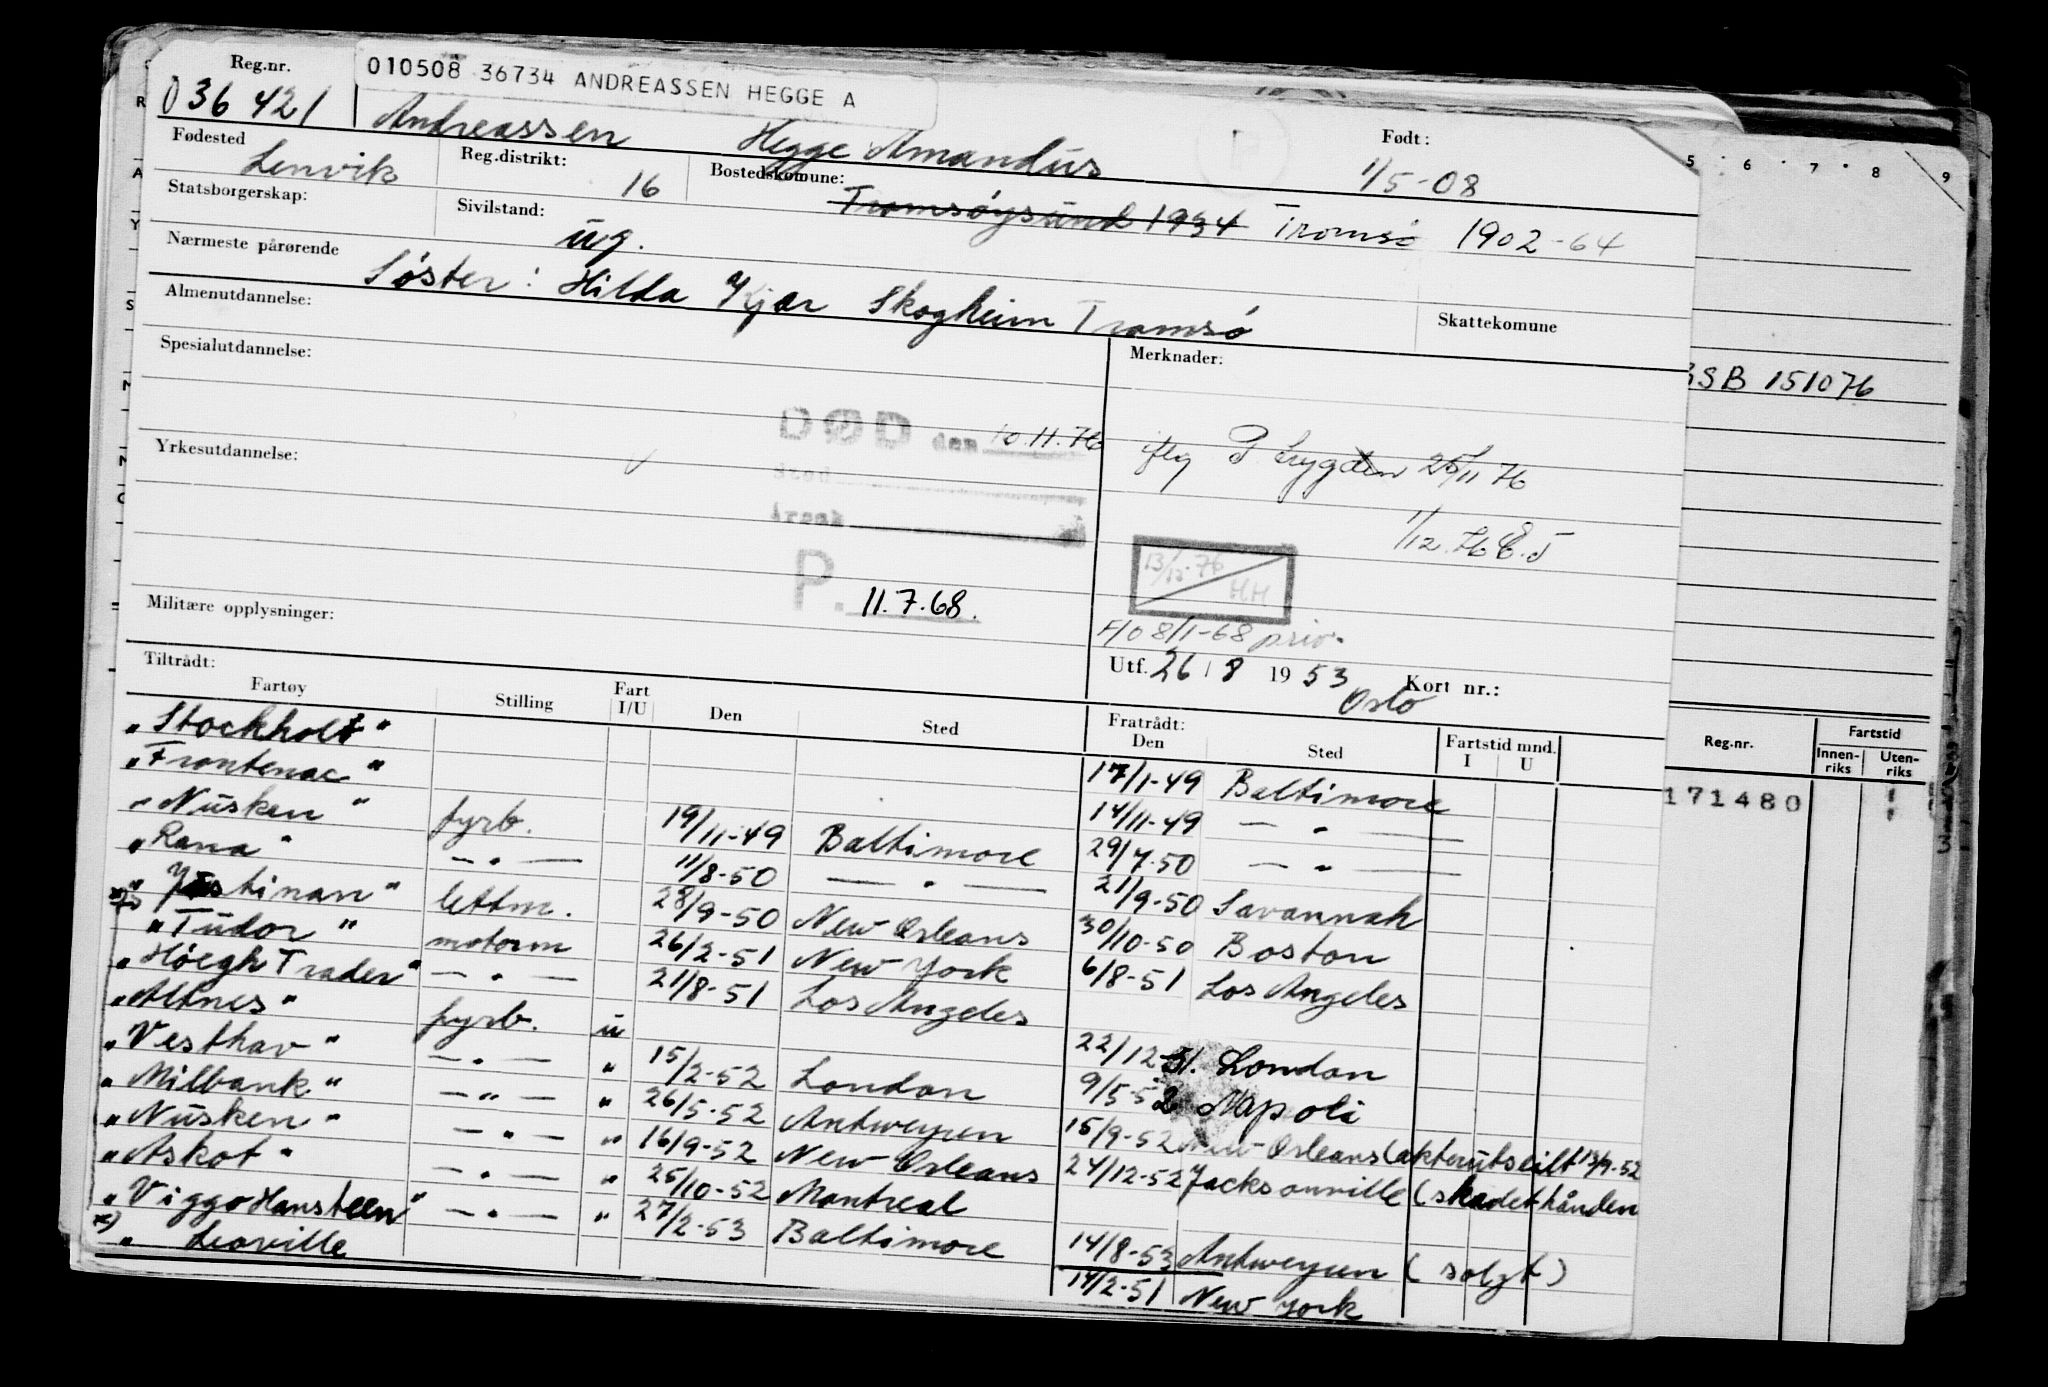 Reg.nr. 010508 36734 ANDREASSEN HEGGE A
036421 Andreassen Hegge Amandus Født: 1/5-08
Fødested Lenvik Reg.distrikt: 16 Bostedskomune: Tromsøysund 1934 Tromsø 1902-64
Statsborgerskap: Sivilstand: ug.
Nærmeste pårørende Søster: Hilda Kjær Skogheim Tromsø
Almenutdannelse: Skattekomune
Spesialutdannelse: Merknader:
SB 151076
DØD den 10.11.76
sted
Årsak
Yrkesutdannelse:
P. Trygden 25/11 76
1/12.76 E.J
13/12-76 HH
P. 11.7.68.
Militære opplysninger:
F/O 8/1-68 priv.
Utf. 26/8 1953 Kort nr.:
Oslo
Tiltrådt: Fratrådt:
Fartøy Stilling Fart I/U Den Sted Den Sted Fartstid mnd. I U
Reg.nr. Fartstid Innen-riks Uten-riks
171480
"Stockholt" 17/1-49 Baltimore
"Frontenac" 14/11-49 — " —
"Nusken" fyrb. 19/11-49 Baltimore 29/7-50 — " —
"Rana" — " — 11/8-50 — " — 21/9-50 Savannah
"Justinan" lettm. 28/9-50 New Orleans 30/10-50 Boston
*) "Tudor" motorm 26/2-51 New York 6/8-51 Los Angeles
"Höegh Trader" — " — 21/8-51 Los Angeles
"Altnes" fyrb. u 22/12-51. London
"Vesthav" — " — " 15/2-52 London 9/5-52 Napoli
"Milbank" — " — " 26/5-52 Antwerpen 15/9-52 New Orleans (akterutseilt 13/9-52
"Nusken" — " — " 16/9-52 New Orleans
"Askot" — " — " 25/10-52 Montreal 24/12-52 Jacksonville (skadet hånden
"Viggo Hansteen" — " — " 27/2-53 Baltimore 14/8-53 Antwerpen (solgt)
*) " Leoville 14/2-51 New York